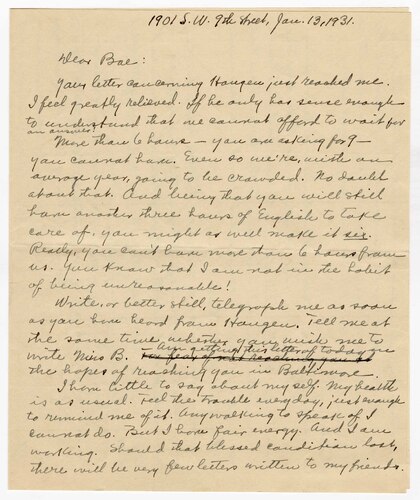 1901 S. W. 9th Street, Jan. 13, 1931.
Dear Boe:
Your letter concerning Haugen just reached me.
I feel greatly relieved. If he only has sense enough
to understand that we cannot afford to wait for
an answer!
More than 6 hours — you are asking for 9 —
you cannot have. Even so we're, with an
average year, going to be crowded. No doubt
about that. And being that you will still
have another three hours of English to take
care of, you might as well make it six.
Really, you can't have more than 6 hours from
us. You know that I am not in the habit
of being unreasonable!
Write, or better still, telegraph me as soon
as you have heard from Haugen. Tell me at
the same time whether you wish me to
write Miss B. Am sending this letter off today in
the hopes of reaching you in Baltimore.
I have little to say about myself. My health
is as usual. Feel the trouble everyday, just enough
to remind me of it. Any walking to speak of I
cannot do. But I have fair energy. And I am
working. Should that blessed condition last,
there will be very few letters written to my friends.